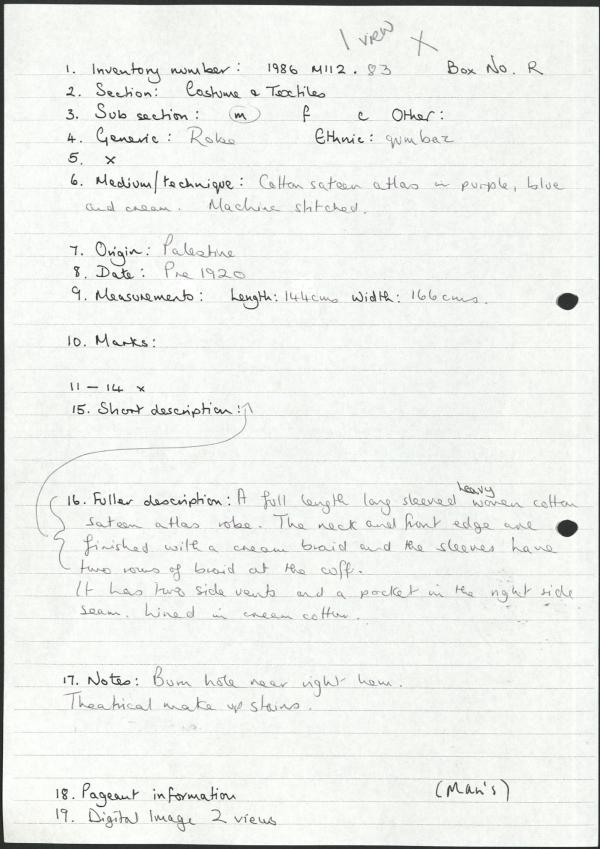 1 view X
1. Inventory number: 1986 M112.83 Box No. R
2. Section: Costume & Textiles
3. Sub section: m f c Other:
4. Generic: Robe Ethnic: qumbaz
5. x
6. Medium/technique: Cotton sateen atlas in purple, blue
and cream. Machine stitched.
7. Origin: Palestine
8. Date: Pre 1920
9. Measurements: Length: 144cms Width: 166cms.
10. Marks:
11 – 14 x
15. Short description:
heavy
16. Fuller description: A full length long sleeved woven cotton
sateen atlas robe. The neck and front edge are
finished with a cream braid and the sleeves have
two rows of braid at the cuff.
It has two side vents and a pocket in the right side
seam. Lined in cream cotton.
17. Notes: Burn hole near right hem.
Theatrical make up stains.
18. Pageant information (Man's)
19. Digital Image 2 views